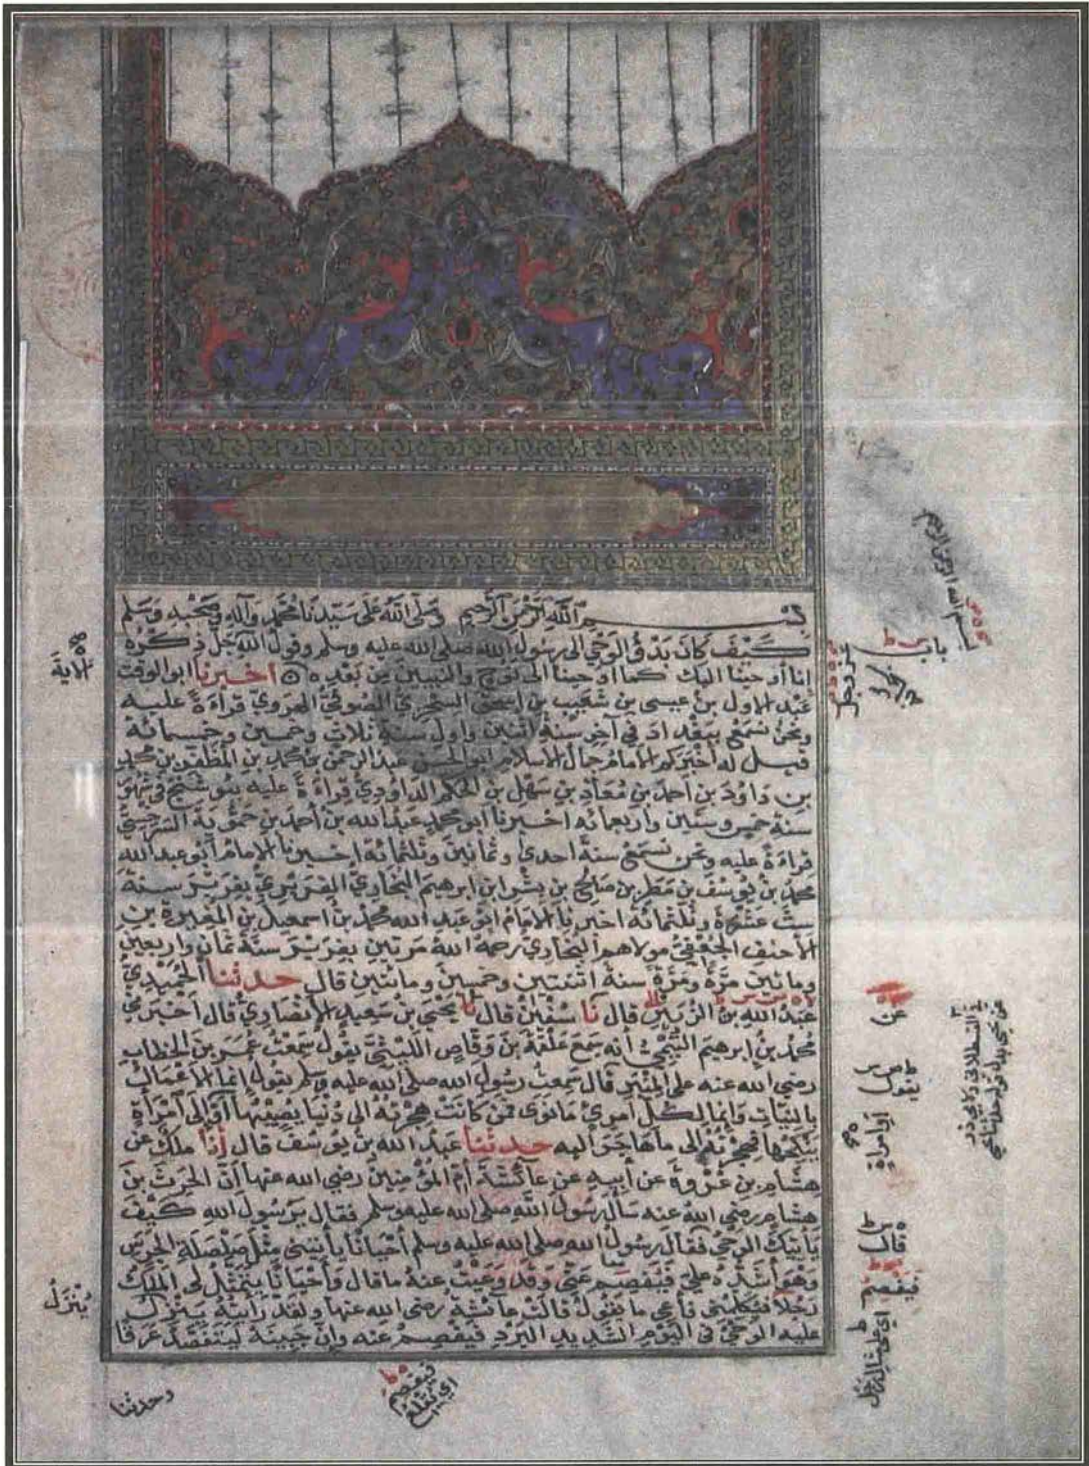 بسم الله الرحمن الرحيم وصلى الله على سيدنا محمد وآله وصحبه وسلم
كَيْفَ كان بدؤ الوحي الى رسول الله صلى الله عليه وسلم وقول الله جل ذكره
إنا أوحينا اليك كما اوحينا الى نوح والنبيين من بعده أخبرنا ابو الوقت
عبد الاول بن عيسى بن شعيب بن اسحق السجزي الصوفي الهروي قراءة عليه
ونحن نسمع ببغداد في آخر سنة اثنتين واول سنة ثلاث وخمسين وخمسمائة
قيل له أخبركم الامام جمال الاسلام ابو الحسن عبد الرحمن بن محمد بن المظفر بن محمد
بن داود بن احمد بن معاذ بن سهل بن الحكم الداودي قراءة عليه ببوشنج في شهور
سنة خمس وستين واربعمائه اخبرنا ابو محمد عبد الله بن أحمد بن حمويه السرخسي
قراءة عليه ونحن نسمع سنة احدى وثمانين وثلثمائة اخبرنا الامام أبو عبد الله
محمد بن يوسف بن مطر بن صالح بن بشر ابن ابرهيم البخاري الفربري بفربر سنة
ست عشرة وثلثمائه اخبرنا الامام ابو عبد الله محمد بن اسمعيل بن المغيرة بن
الأحنف الجعفي مولاهم البخاري رحمه الله مرتين بفربر سنة ثمان واربعين
ومائتين مرة ومرة سنة اثنتين وخمسين ومائتين قال حدثنا الحميدي
عبد الله بن الزبير قال نا سفين قال نا يحيى بن سعيد الأنصاري قال أخبرني
محمد بن إبرهيم التيمي أنه سمع علقمة بن وقاص الليثي يقول سمعت عمر بن الخطاب
رضي الله عنه على المنبر قال سمعت رسول الله صلى الله عليه وسلم يقول إنما الأعمال
بالنيات وإنما لكل امرئ ما نوى فمن كانت هجرته الى دنيا يصيبها أو الى امرأة
ينكحها فهجرته الى ما هاجر اليه حدثنا عبد الله بن يوسف قال أنا ملك عن
هشام بن عروة عن أبيه عن عائشة أم المؤمنين رضي الله عنها أن الحرث بن
هشام رضي الله عنه سأل رسول الله صلى الله عليه وسلم فقال يرسول الله كيف
يأتيك الوحي فقال رسول الله صلى الله عليه وسلم أحيانا يأتيني مثل صلصلة الجرس
وهو أشده علي فيفصم عني وقد وعيت عنه ما قال وأحيانا يتمثل لي الملك
رجلا فيكلمني فأعي ما يقول قالت عائشة رضي الله عنها ولقد رأيته ينزل
عليه الوحي في اليوم الشديد البرد فيفصم عنه وإن جبينه ليتفصد عرقا
الآية
باب
عز وجل
عن
يقول
أو امرأة
قال
فيفصم
اي على مثال رجل
يُنْزَلُ
فيفصم
اي يقلع
وحدثنا